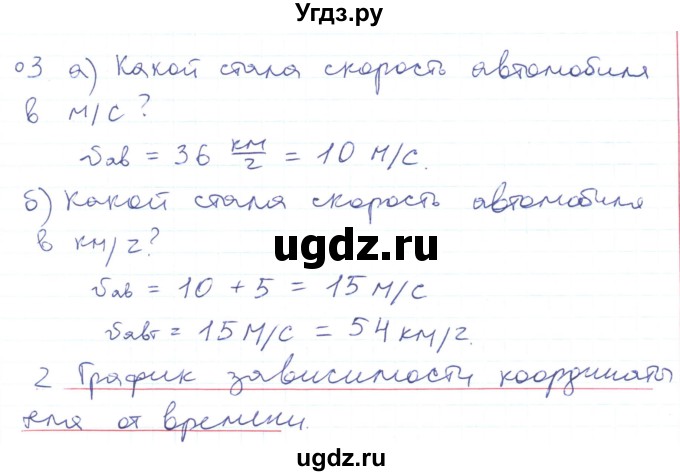 Угдз.ру
оз а) Какой стала скорость автомобиля
в м/с?
υав = 36 км/ч = 10 м/с.
б) Какой стала скорость автомобиля
в км/ч?
ugdz.ru
υав = 10 + 5 = 15 м/с
υавт = 15 м/с = 54 км/ч.
2 График зависимости координаты
тела от времени.
ugdz.ru